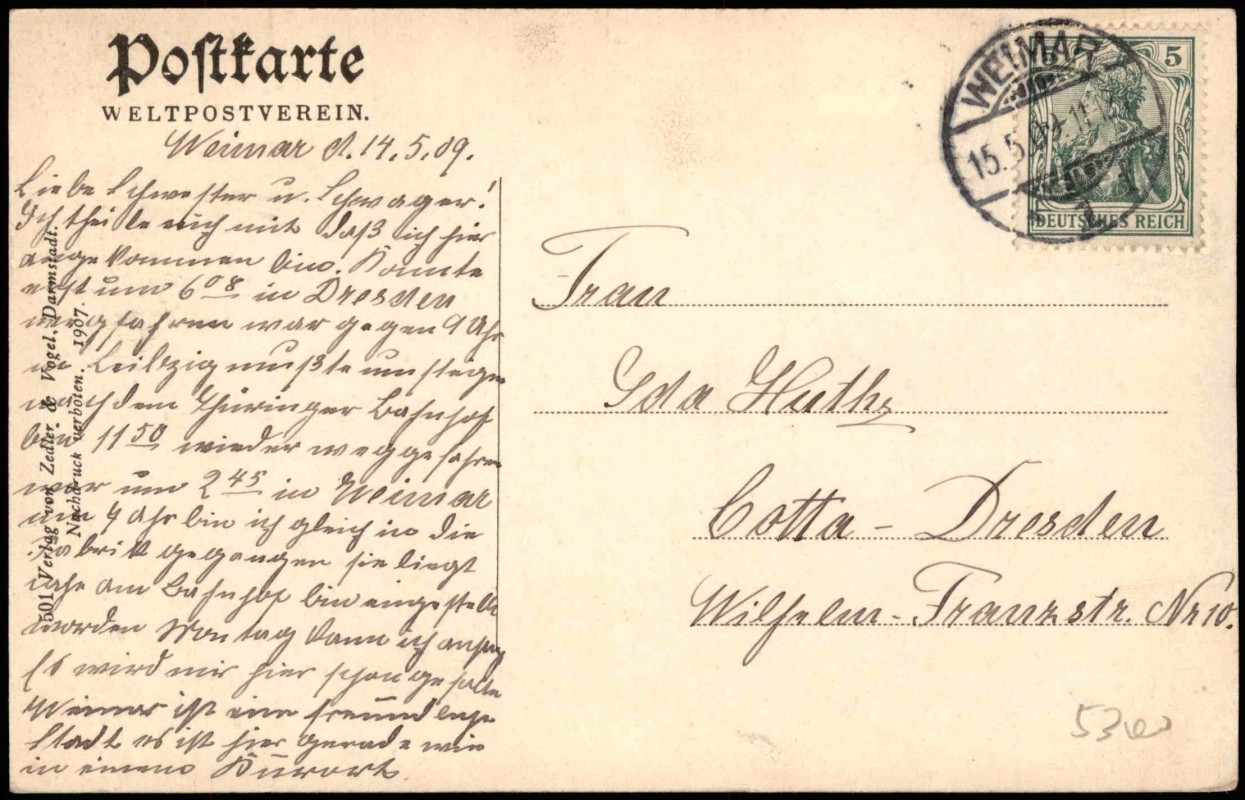 Postkarte
WELTPOSTVEREIN.
Weimar d. 14.5.09.
Liebe Schwester u. Schwager!
Ich theile euch mit daß ich hier
angekommen bin. Konnte
erst um 6 08 in Dresden
wegfahren war gegen 9 Uhr
in Leibzig mußte umsteigen
nach dem Thüringer Bahnhof
bin 11 50 wieder weggefahren
war um 2 45 in Weimar
um 4 Uhr bin ich gleich in die
Fabrik gegangen sie liegt
nahe am Bahnhof bin eingestellt
worden Montag kann ich anfang
Es wird mir hier schon gefallen
Weimar ist eine freundliche
Stadt es ist hier gerade wie
in einem Kurort.
501 Verlag von Zedler & Vogel, Darmstadt.
Nachdruck verboten. 1907.
WEIMAR
15.5.09.11-12
5 5
DEUTSCHES REICH
Frau
Ida Huth
Cotta - Dresden
Wilhelm-Franzstr. Nr 10.